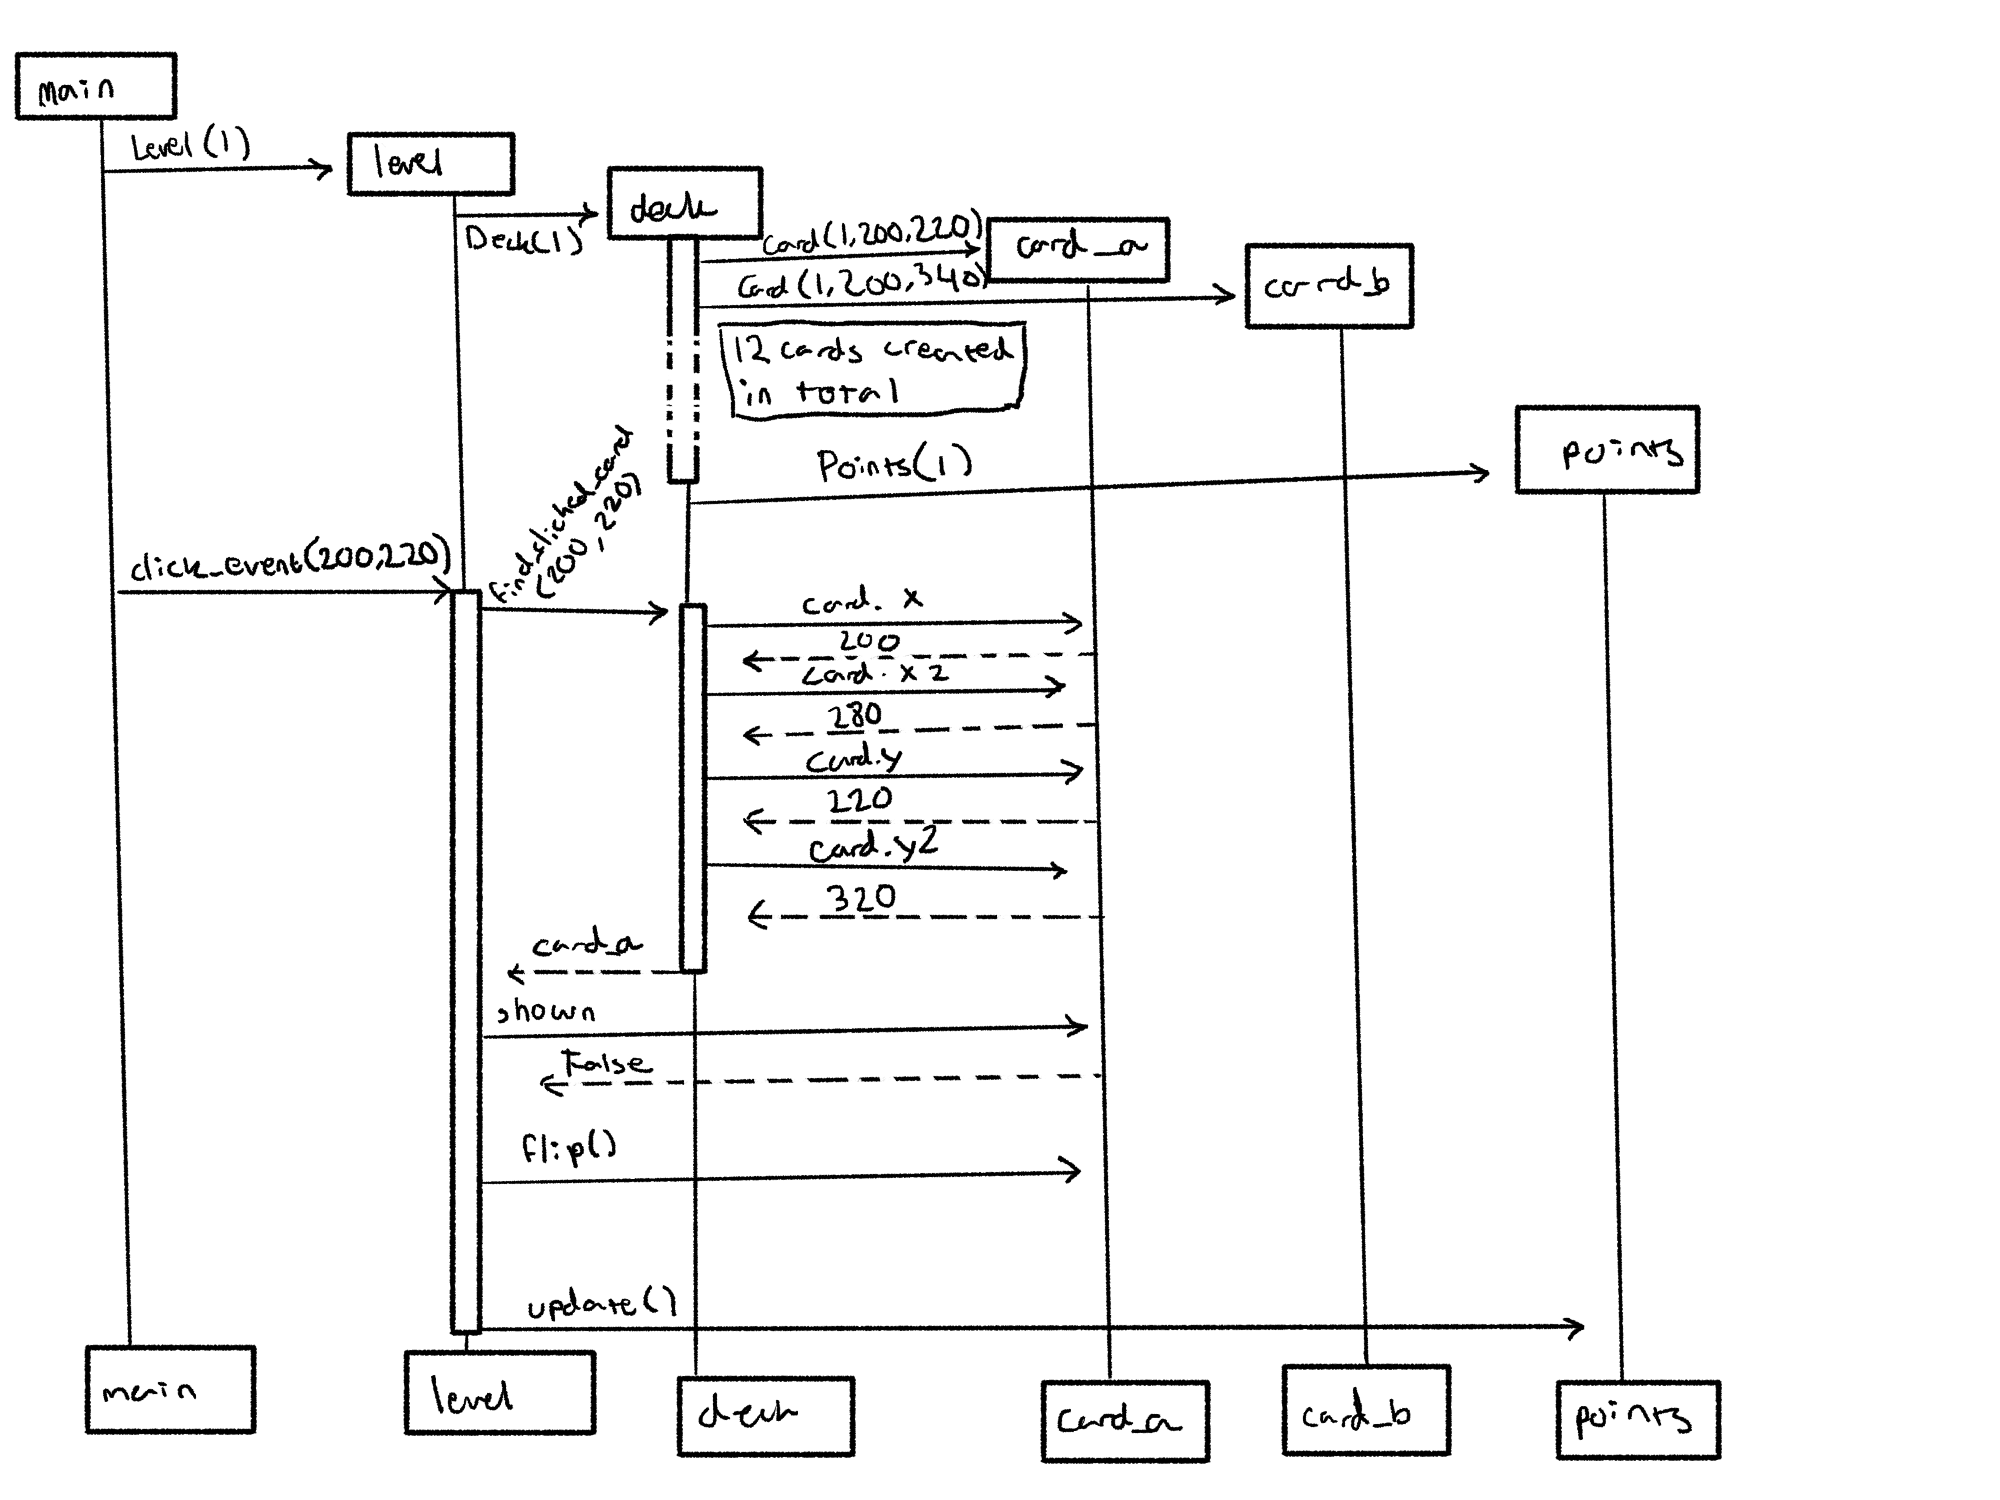 main
Level(1)
level
deck
Deck(1)
Card(1,200,220)
card_a
Card(1,200,340)
card_b
12 cards created
in total
points
Points(1)
find_clicked_card
(200,220)
click_event(200,220)
card.x
200
card.x2
280
card.y
220
card.y2
320
card_a
shown
False
flip()
update()
main
level
deck
card_a
card_b
points